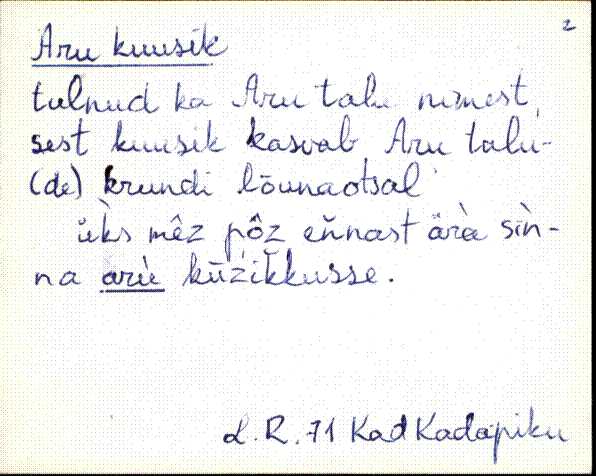 2
Aru kuusik
tulnud ka Aru talu nimest,
sest kuusik kasvab Aru talu-
(de) krundi lõunaotsal
üks mêz pôz eńnast ärà sīn-
na arù kūzikkusse.
L. R. 71 Kad Kadapiku